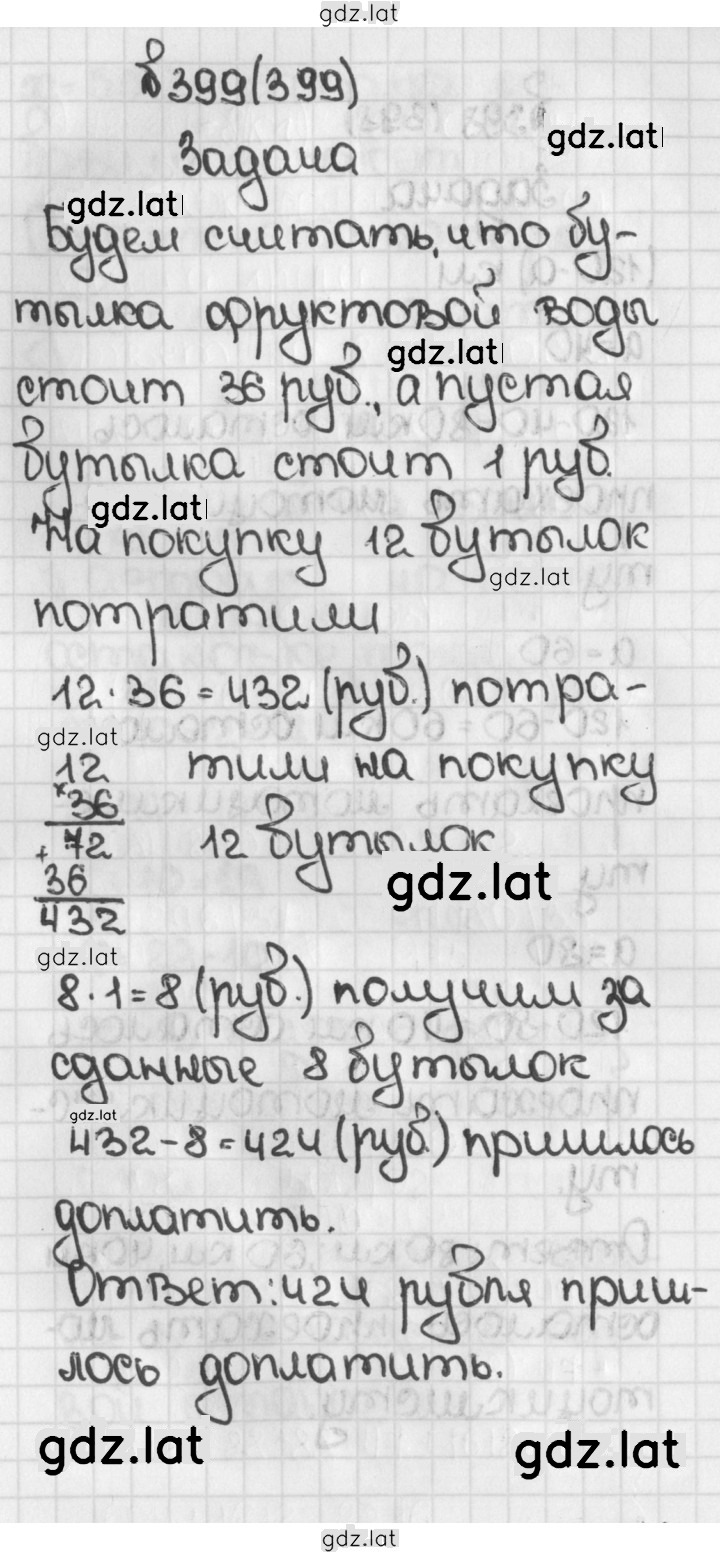 gdz.lat
№399(399)
gdz.lat
Задача
gdz.lat
Будем считать, что бу-
тылка фруктовой воды
gdz.lat
стоит 36 руб., а пустая
бутылка стоит 1 руб.
gdz.lat
На покупку 12 бутылок
gdz.lat
потратили
12·36=432 (руб.) потра-
gdz.lat
12 тили на покупку
×36
+72 12 бутылок
gdz.lat
36
432
gdz.lat
8·1=8 (руб.) получим за
сданные 8 бутылок
gdz.lat
432-8=424 (руб.) пришлось
доплатить.
Ответ: 424 рубля приш-
лось доплатить.
gdz.lat
gdz.lat
gdz.lat